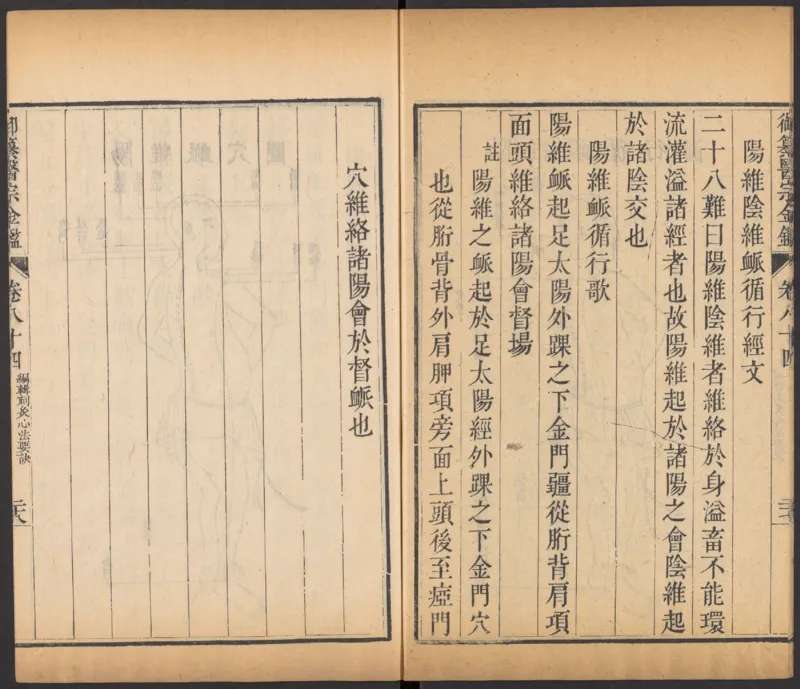 御纂醫宗金鑑
卷八十四
陽維陰維䘑循行經文
二十八難曰陽維陰維者維絡於身溢畜不能環
流灌溢諸經者也故陽維起於諸陽之會陰維起
於諸陰交也
陽維䘑循行歌
陽維䘑起足太陽外踝之下金門疆從胻背肩項
面頭維絡諸陽會督場
註陽維之䘑起於足太陽經外踝之下金門穴
也從胻骨背外肩胛項旁面上頭後至瘂門
穴維絡諸陽會於督䘑也
御纂醫宗金鑑
卷八十四
編輯刺灸心法要訣